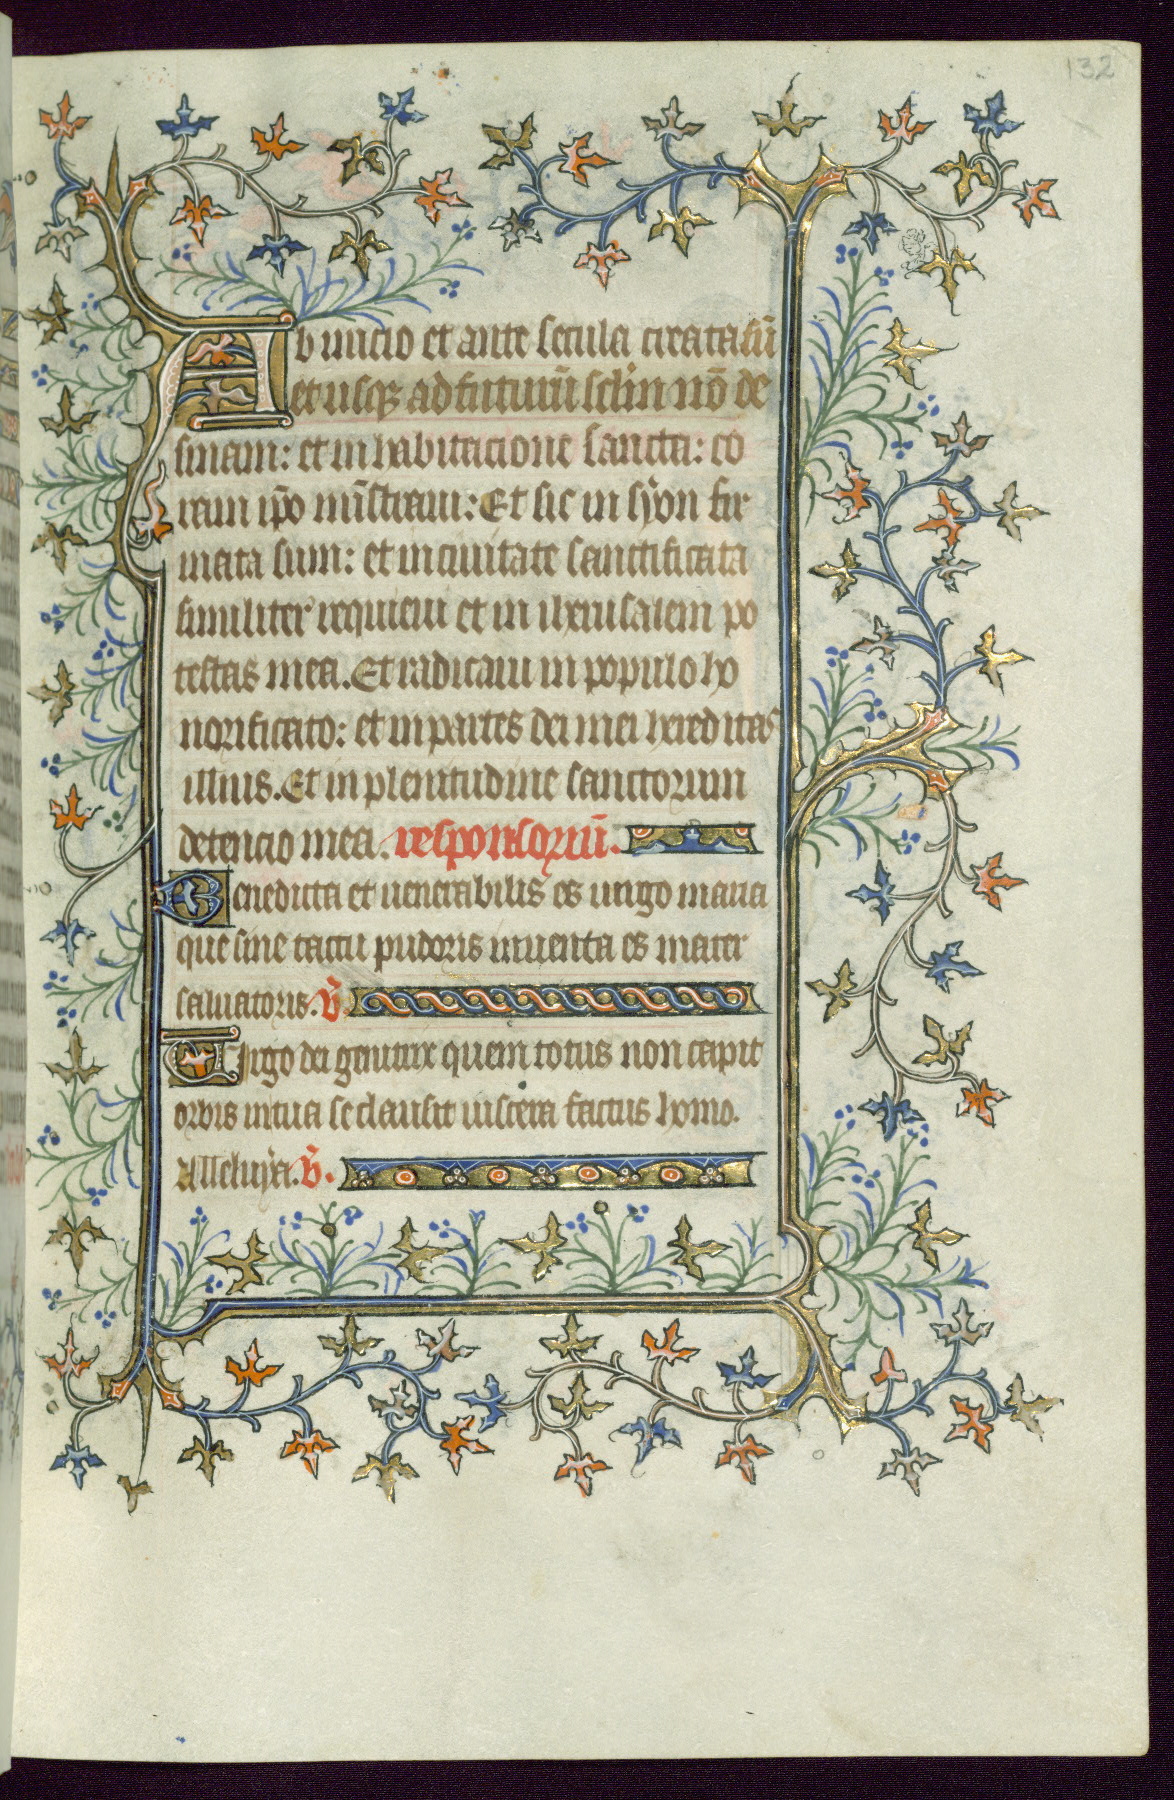 132
Ab inicio et ante secula creata sū
et usq̄ ad futurū sclm̄ nō de
sinam: et in habitacione sancta: co
ram ip̄o ministraui: Et sic in syon fir
mata sum: et in ciuitate sanctificata
similiter requieui et in iherusalem po
testas mea. Et radicaui in populo ho
norificato: et in partes dei mei hereditas
illius. Et in plenitudine sanctorum
detencio mea. responsoriū.
Benedicta et uenerabilis es uirgo maria
que sine tactu pudoris inuenta es mater
saluatoris. v̄
Virgo dei genitrix quem totus non capit
orbis in tua se clausit uiscera factus homo.
Alleluya. v̄.